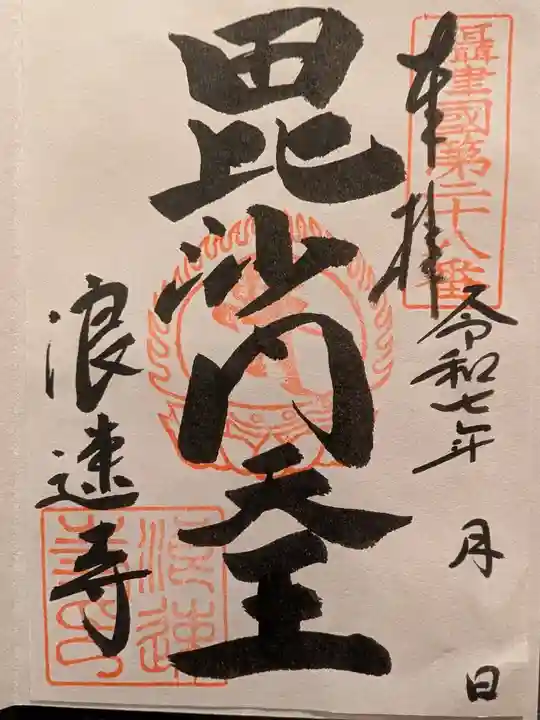 攝津國第二十八番
奉拝
令和七年 月 日
毘沙門天王
浪速寺
浪速寺印